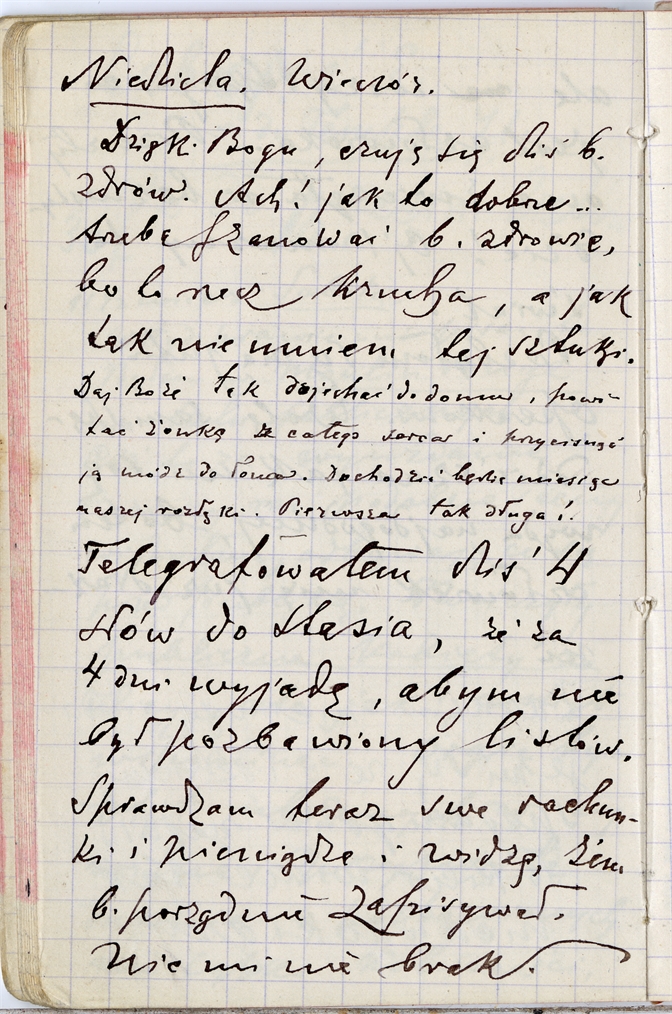 Niedziela. Wieczór.
Dzięki Bogu, czuję się dziś b.
zdrów. Ach! jak to dobrze...
trzeba szanować b. zdrowie,
bo to rzecz krucha, a jak
tak nie umiem tej sztuki.
Daj Boże tak dojechać do domu, powi-
tać żonkę ze całego serca i przycisnąć
ją módz do łona. Dochodzi będzie miesiąc
naszej rozłąki. Pierwsza tak długa!.
Telegrafowałem dziś 4
słów do Stasia, że za
4 dni wyjadę, abym nie
był pozbawiony listów.
Sprawdzam teraz swe rachun-
ki i pieniądze i widzę, żem
b. porządnie zapisywał.
Nic mi nie brak.